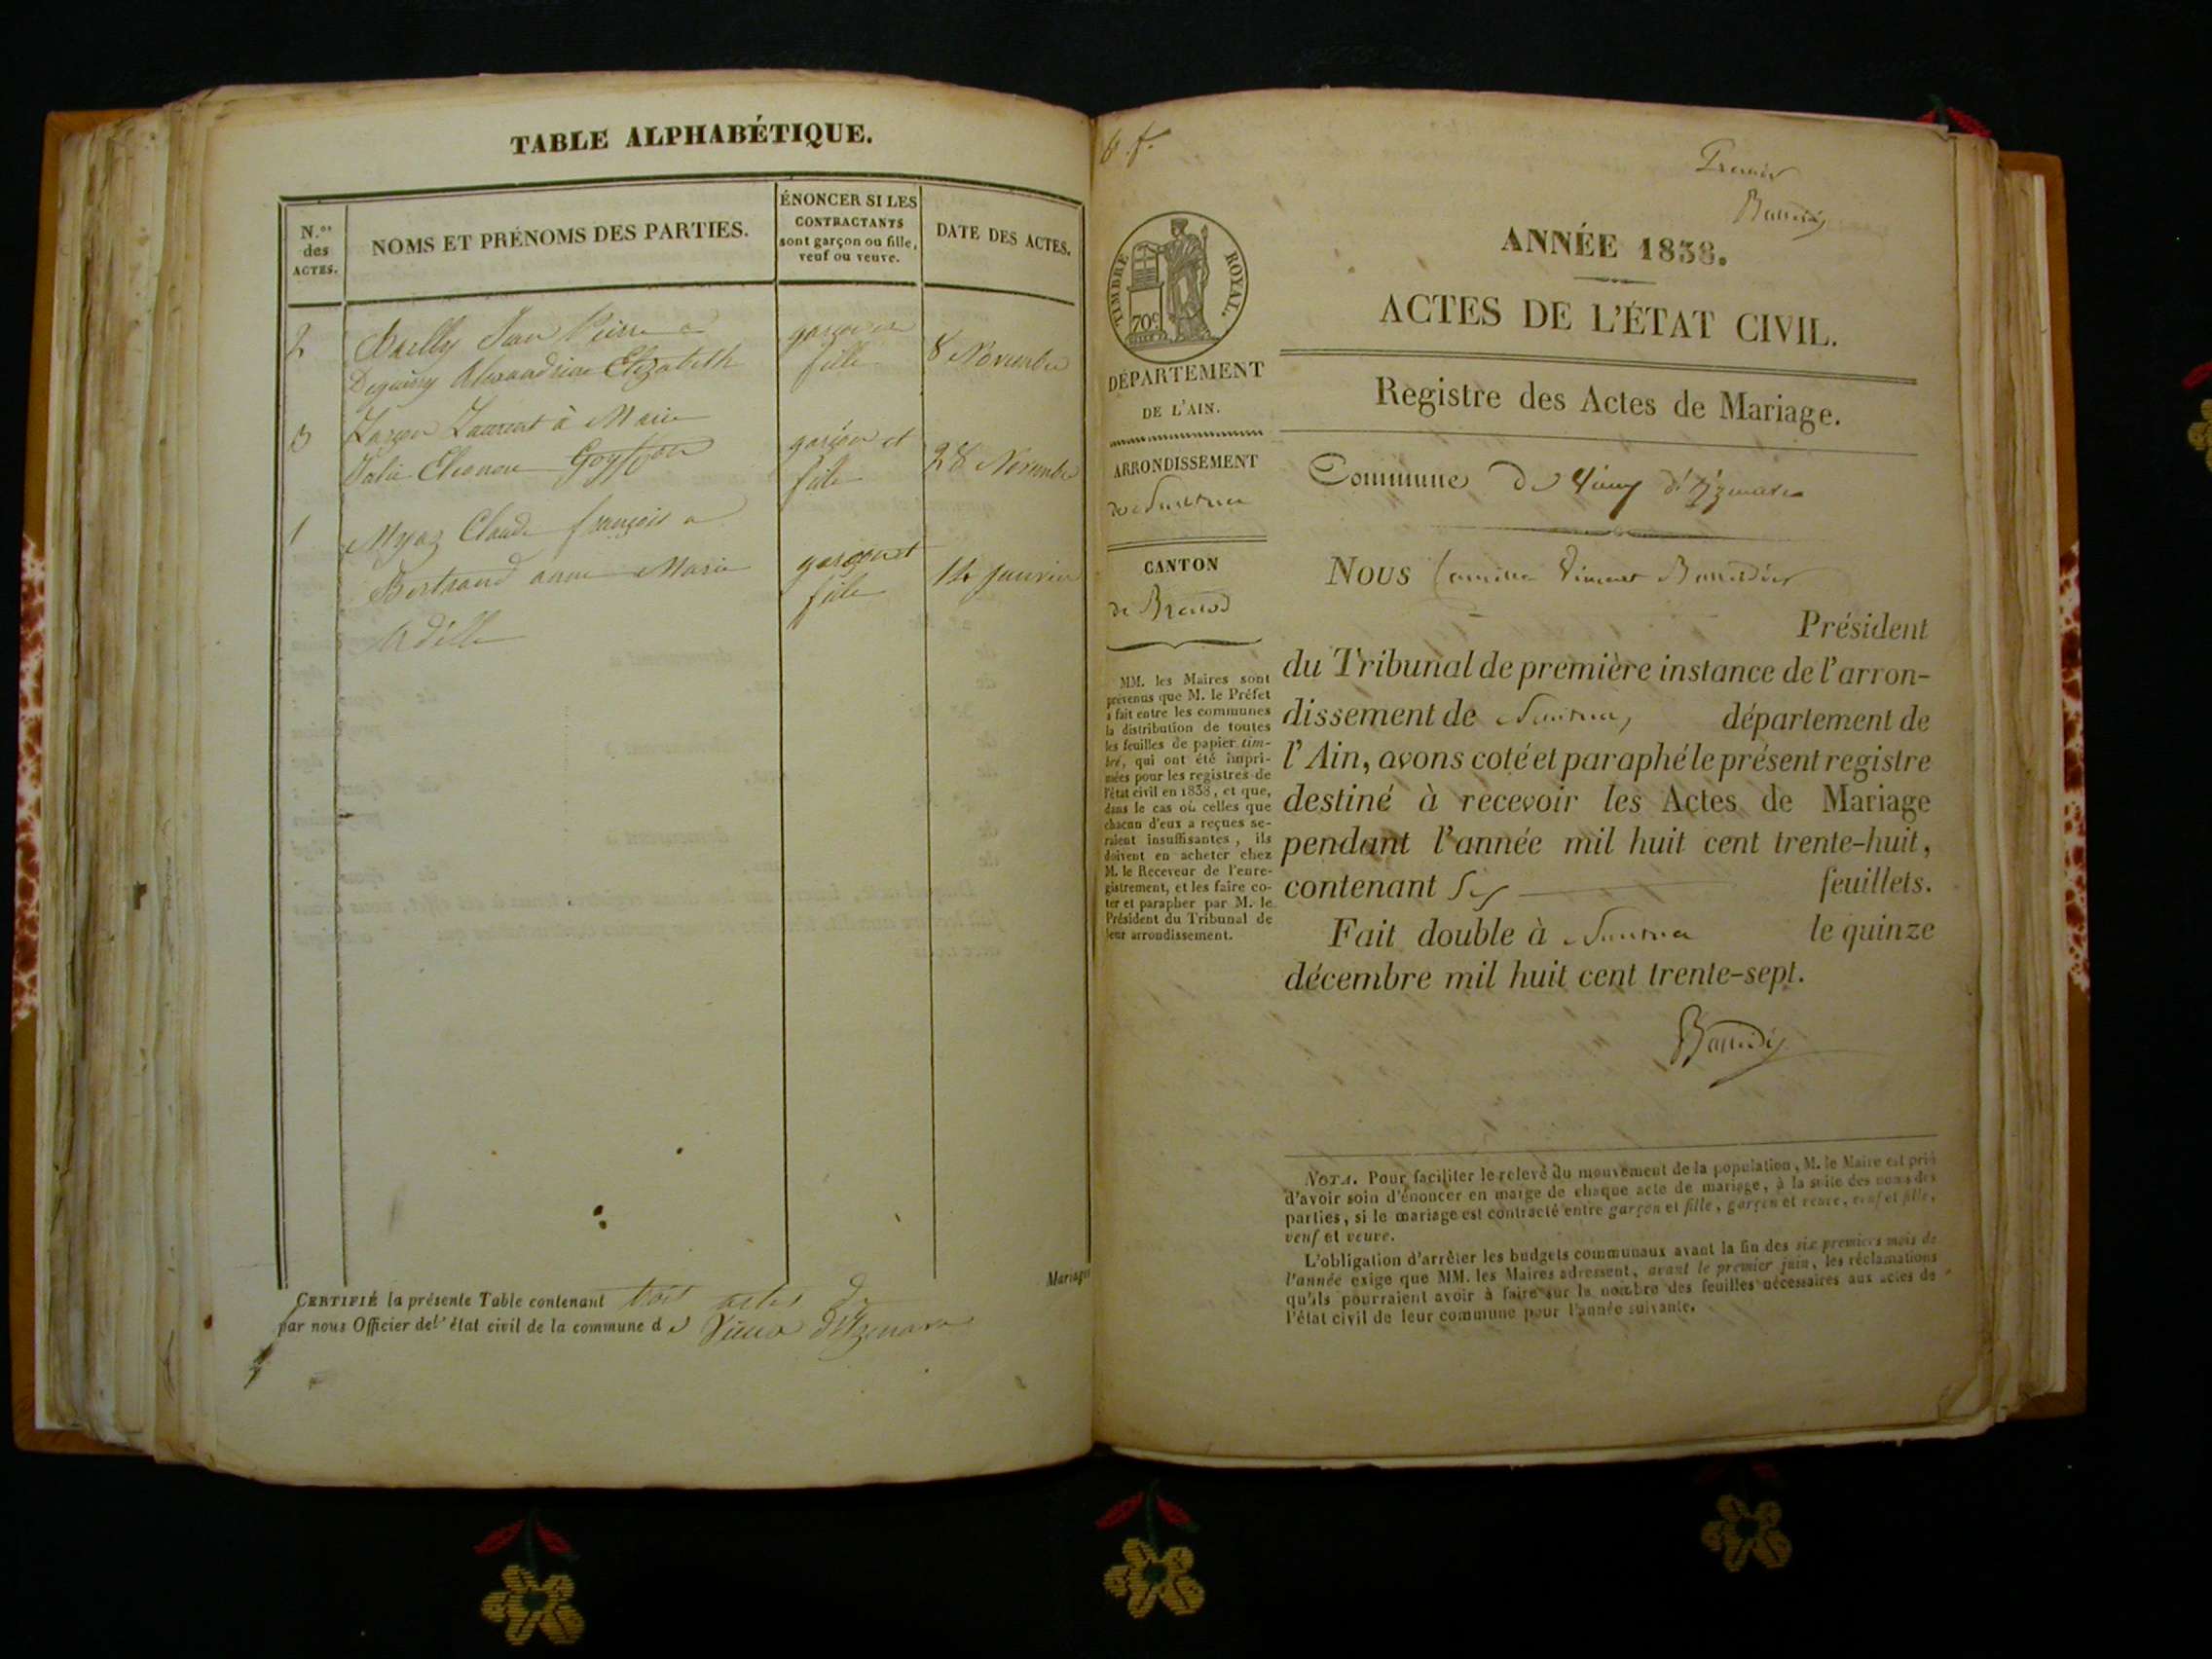 TABLE ALPHABÉTIQUE.
N.os des ACTES.
NOMS ET PRÉNOMS DES PARTIES.
ÉNONCER SI LES
CONTRACTANTS
sont garçon ou fille,
veuf ou veuve.
DATE DES ACTES.
2 Bailly Jean Pierre a garçon et
Alexandrine Elizabeth fille 8 Novembre
3 Laurent à Marie
Eleonore garçon et fille 28 Novembre
1 Claude françois a
Bertrand anne Marie garçon et fille 14 Janvier
Adelle
Mariages
CERTIFIÉ la présente Table contenant trois actes
par nous Officier de l'état civil de la commune de Vieux d'Izenave
6. f.
Premier
TIMBRE ROYAL.
70c
ANNÉE 1838.
ACTES DE L'ÉTAT CIVIL.
DÉPARTEMENT
DE L'AIN.
ARRONDISSEMENT
de Nantua
CANTON
de Brenod
MM. les Maires sont
prévenus que M. le Préfet
a fait entre les communes
la distribution de toutes
les feuilles de papier tim-
bré, qui ont été impri-
mées pour les registres de
l'état civil en 1838, et que,
dans le cas où celles que
chacun d'eux a reçues se-
raient insuffisantes, ils
doivent en acheter chez
M. le Receveur de l'enre-
gistrement, et les faire co-
ter et parapher par M. le
Président du Tribunal de
leur arrondissement.
Registre des Actes de Mariage.
Commune de Vieux d'Izenave
Nous Camille Vincent
Président
du Tribunal de première instance de l'arron-
dissement de Nantua, département de
l'Ain, avons coté et paraphé le présent registre
destiné à recevoir les Actes de Mariage
pendant l'année mil huit cent trente-huit,
contenant Six feuillets.
Fait double à Nantua le quinze
décembre mil huit cent trente-sept.
NOTA. Pour faciliter le relevé du mouvement de la population, M. le Maire est prié
d'avoir soin d'énoncer en marge de chaque acte de mariage, à la suite des noms des
parties, si le mariage est contracté entre garçon et fille, garçon et veuve, veuf et fille,
veuf et veuve.
L'obligation d'arrêter les budgets communaux avant la fin des six premiers mois de
l'année exige que MM. les Maires adressent, avant le premier juin, les réclamations
qu'ils pourraient avoir à faire sur le nombre des feuilles nécessaires aux actes de
l'état civil de leur commune pour l'année suivante.